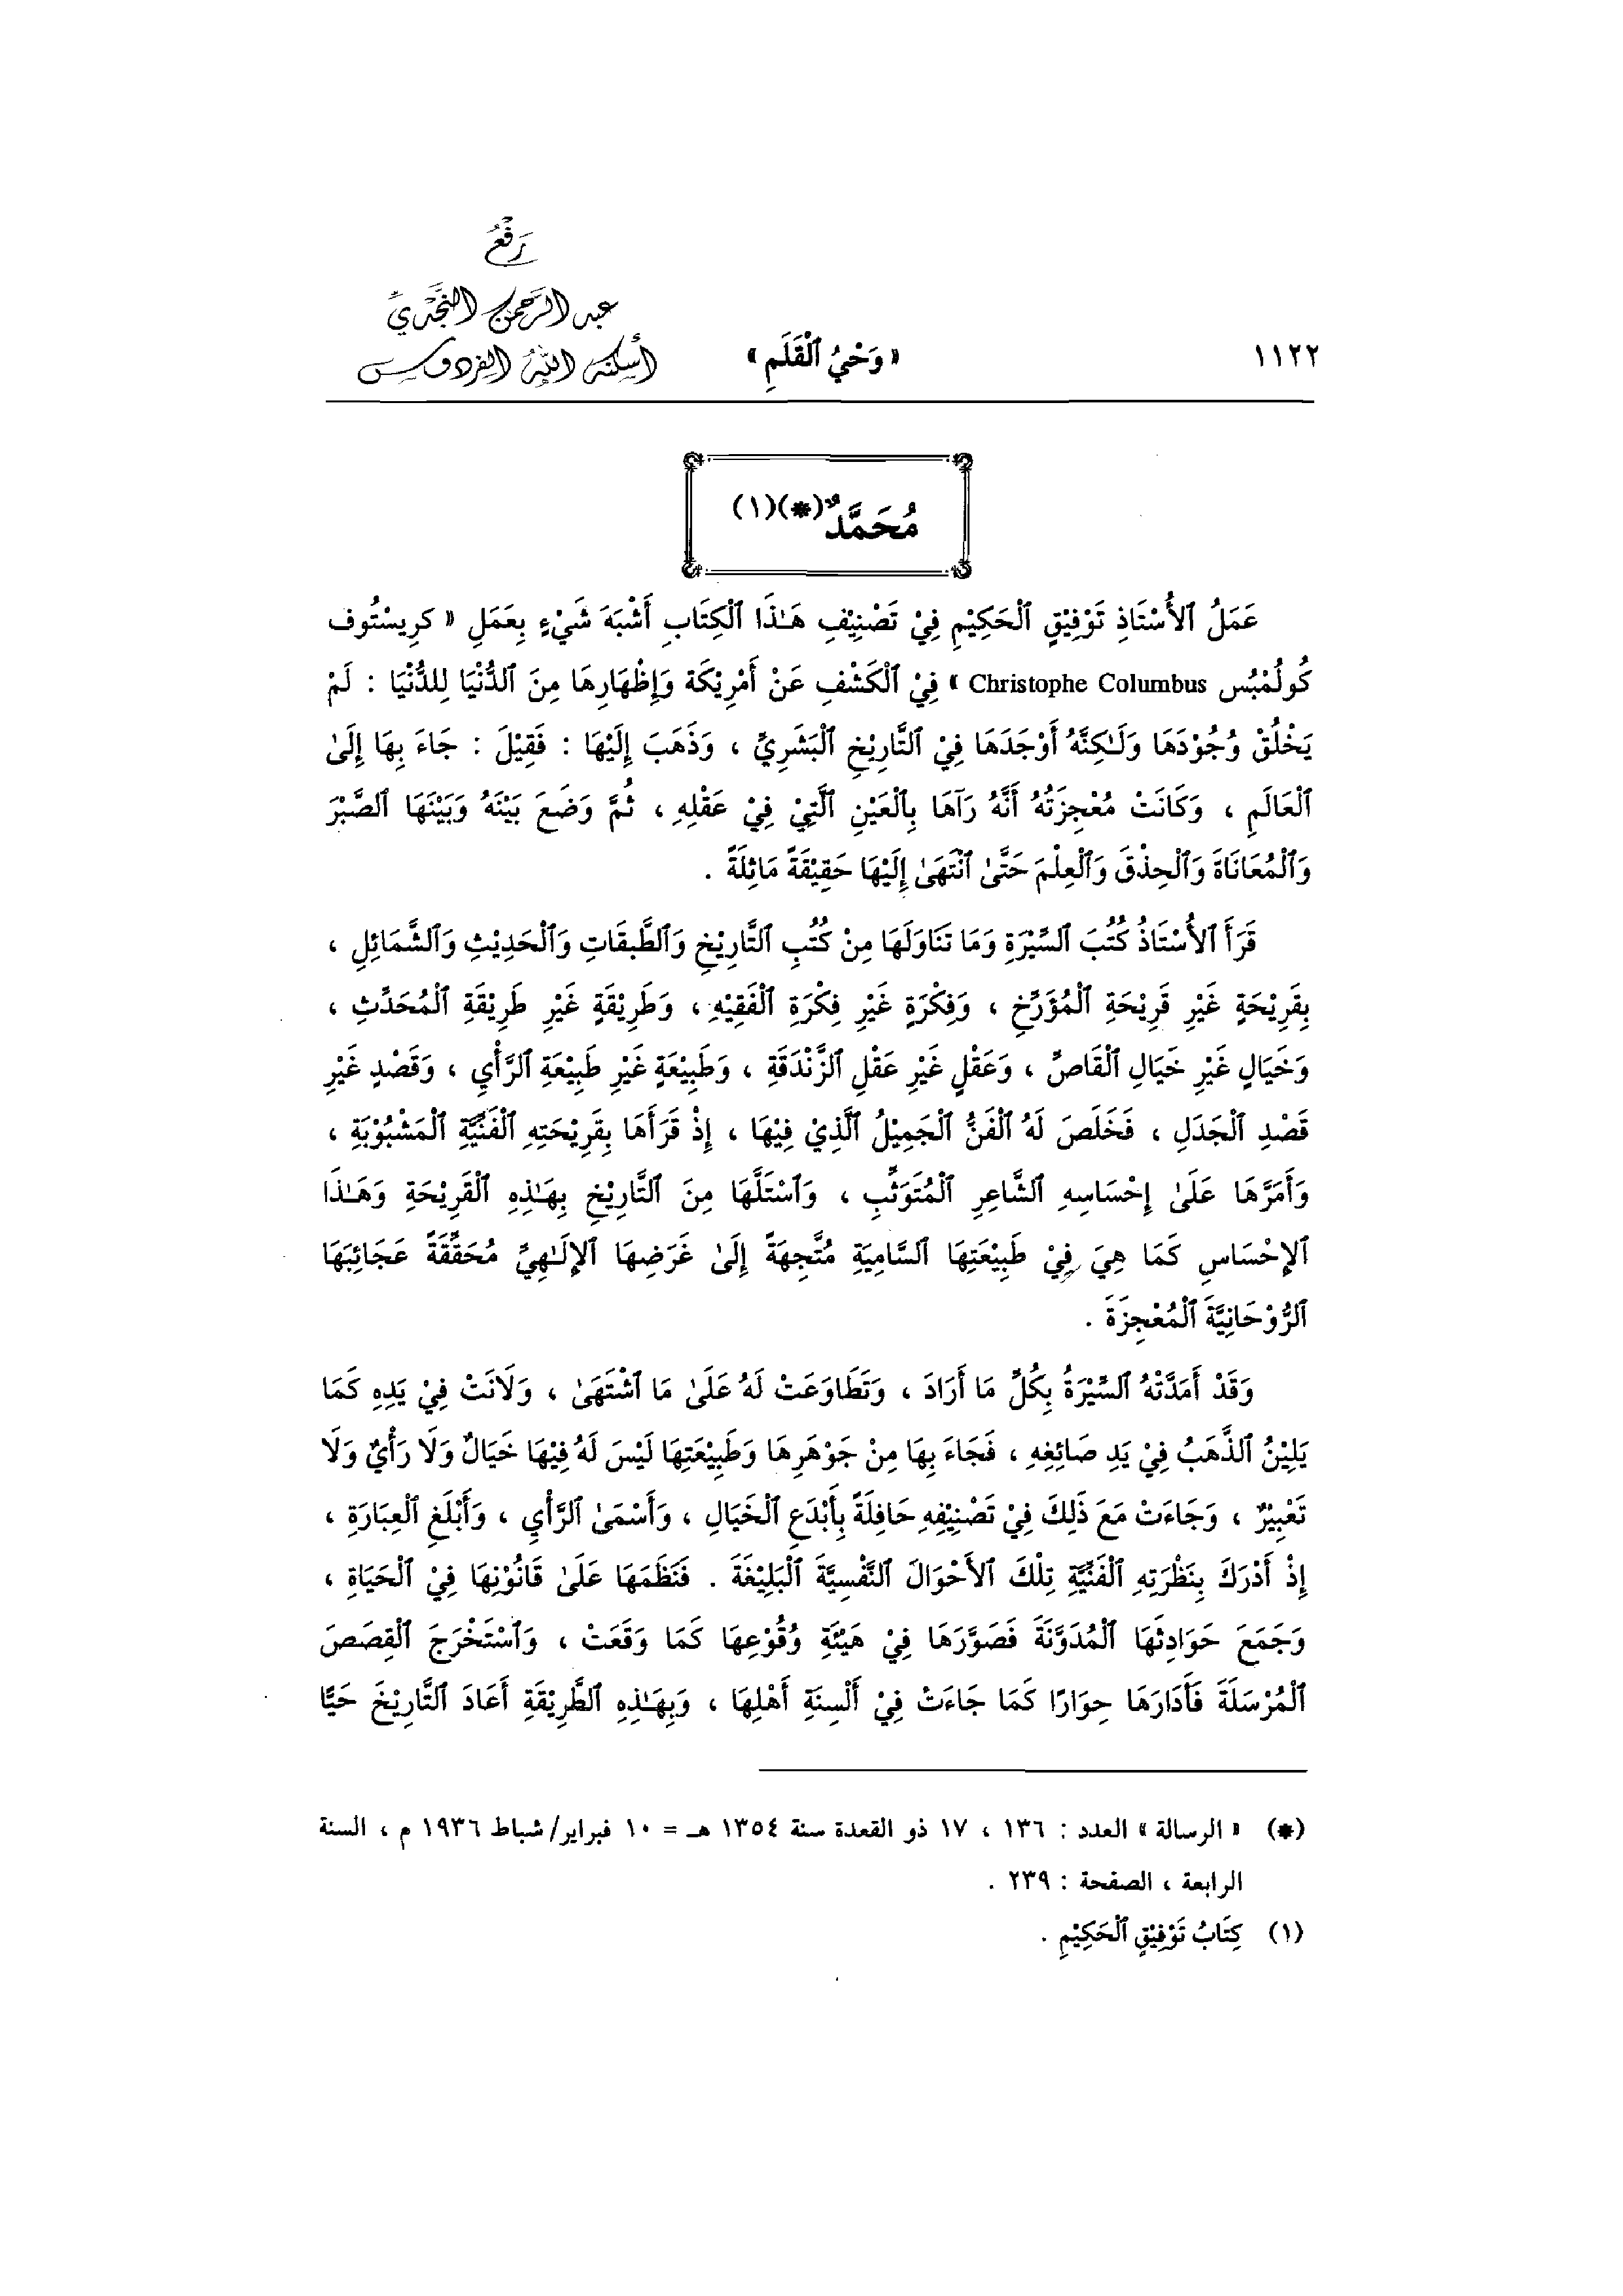 رَفَعُ
عبد الرحمن النجدي
أسكنه الله الفردوس
١١٢٢
« وَحْيُ ٱلْقَلَمِ »
مُحَمَّدٌ(*)(١)
عَمَلُ ٱلأُسْتَاذِ تَوْفِيْقٍ ٱلْحَكِيْمِ فِيْ تَصْنِيْفِ هَـٰذَا ٱلْكِتَابِ أَشْبَهَ شَيْءٍ بِعَمَلِ « كرِيسْتُوف
كُولُمْبُس Christophe Columbus » فِيْ ٱلْكَشْفِ عَنْ أَمْرِيْكَة وَإِظْهَارِهَا مِنَ ٱلدُّنْيَا لِلدُّنْيَا : لَمْ
يَخْلُقْ وُجُوْدَهَا وَلَـٰكِنَّهُ أَوْجَدَهَا فِيْ ٱلتَّارِيْخِ ٱلْبَشَرِيِّ ، وَذَهَبَ إِلَيْهَا : فَقِيْلَ : جَاءَ بِهَا إِلَىٰ
ٱلْعَالَمِ ، وَكَانَتْ مُعْجِزَتُهُ أَنَّهُ رَآهَا بِٱلْعَيْنِ ٱلَّتِيْ فِيْ عَقْلِهِ ، ثُمَّ وَضَعَ بَيْنَهُ وَبَيْنَهَا ٱلصَّبْرَ
وَٱلْمُعَانَاةَ وَٱلْحِذْقَ وَٱلْعِلْمَ حَتَّىٰ ٱنْتَهَىٰ إِلَيْهَا حَقِيْقَةً مَاثِلَةً .
قَرَأَ ٱلأُسْتَاذُ كُتُبَ ٱلسِّيْرَةِ وَمَا تَنَاوَلَهَا مِنْ كُتُبِ ٱلتَّارِيْخِ وَٱلطَّبقَاتِ وَٱلْحَدِيْثِ وَٱلشَّمَائِلِ ،
بِقَرِيْحَةٍ غَيْرِ قَرِيْحَةِ ٱلْمُؤَرِّخِ ، وَفِكْرَةٍ غَيْرِ فِكْرَةِ ٱلْفَقِيْهِ ، وَطَرِيْقَةٍ غَيْرِ طَرِيْقَةِ ٱلْمُحَدِّثِ ،
وَخَيَالٍ غَيْرِ خَيَالِ ٱلْقَاصِّ ، وَعَقْلٍ غَيْرِ عَقْلِ ٱلزَّنْدَقَةِ ، وَطَبِيْعَةٍ غَيْرِ طَبِيْعَةِ ٱلرَّأْيِ ، وَقَصْدٍ غَيْرِ
قَصْدِ ٱلْجَدَلِ ، فَخَلَصَ لَهُ ٱلْفَنُّ ٱلْجَمِيْلُ ٱلَّذِيْ فِيْهَا ، إِذْ قَرَأَهَا بِقَرِيْحَتِهِ ٱلْفَنِّيَّةِ ٱلْمَشْبُوْبَةِ ،
وَأَمَرَّهَا عَلَىٰ إِحْسَاسِهِ ٱلشَّاعِرِ ٱلْمُتَوَثِّبِ ، وَٱسْتَلَّهَا مِنَ ٱلتَّارِيْخِ بِهَـٰذِهِ ٱلْقَرِيْحَةِ وَهَـٰذَا
ٱلإِحْسَاسِ كَمَا هِيَ فِيْ طَبِيْعَتِهَا ٱلسَّامِيَةِ مُتَّجِهَةً إِلَىٰ غَرَضِهَا ٱلإِلَـٰهِيِّ مُحَقِّقَةً عَجَائِبَهَا
ٱلرُّوْحَانِيَّةَ ٱلْمُعْجِزَةَ .
وَقَدْ أَمَدَّتْهُ ٱلسِّيْرَةُ بِكُلِّ مَا أَرَادَ ، وَتَطَاوَعَتْ لَهُ عَلَىٰ مَا ٱشْتَهَىٰ ، وَلَانَتْ فِيْ يَدِهِ كَمَا
يَلِيْنُ ٱلذَّهَبُ فِيْ يَدِ صَائِغِهِ ، فَجَاءَ بِهَا مِنْ جَوْهَرِهَا وَطَبِيْعَتِهَا لَيْسَ لَهُ فِيْهَا خَيَالٌ وَلَا رَأْيٌ وَلَا
تَعْبِيْرٌ ، وَجَاءَتْ مَعَ ذَلِكَ فِيْ تَصْنِيْفِهِ حَافِلَةً بِأَبْدَعِ ٱلْخَيَالِ ، وَأَسْمَىٰ ٱلرَّأْيِ ، وَأَبْلَغِ ٱلْعِبَارَةِ ،
إِذْ أَدْرَكَ بِنَظْرَتِهِ ٱلْفَنِّيَّةِ تِلْكَ ٱلأَحْوَالَ ٱلنَّفْسِيَّةَ ٱلْبَلِيْغَةَ . فَنَظَمَهَا عَلَىٰ قَانُوْنِهَا فِيْ ٱلْحَيَاةِ ،
وَجَمَعَ حَوَادِثَهَا ٱلْمُدَوَّنَةَ فَصَوَّرَهَا فِيْ هَيْئَةِ وُقُوْعِهَا كَمَا وَقَعَتْ ، وَٱسْتَخْرَجَ ٱلْقِصَصَ
ٱلْمُرْسَلَةَ فَأَدَارَهَا حِوَارًا كَمَا جَاءَتْ فِيْ أَلْسِنَةِ أَهْلِهَا ، وَبِهَـٰذِهِ ٱلطَّرِيْقَةِ أَعَادَ ٱلتَّارِيْخَ حَيًّا
(*) « الرسالة » العدد : ١٣٦ ، ١٧ ذو القعدة سنة ١٣٥٤ هـ = ١٠ فبراير/ شباط ١٩٣٦ م ، السنة
الرابعة ، الصفحة : ٢٣٩ .
(١) كِتَابُ تَوْفِيْقٍ ٱلْحَكِيْمِ .